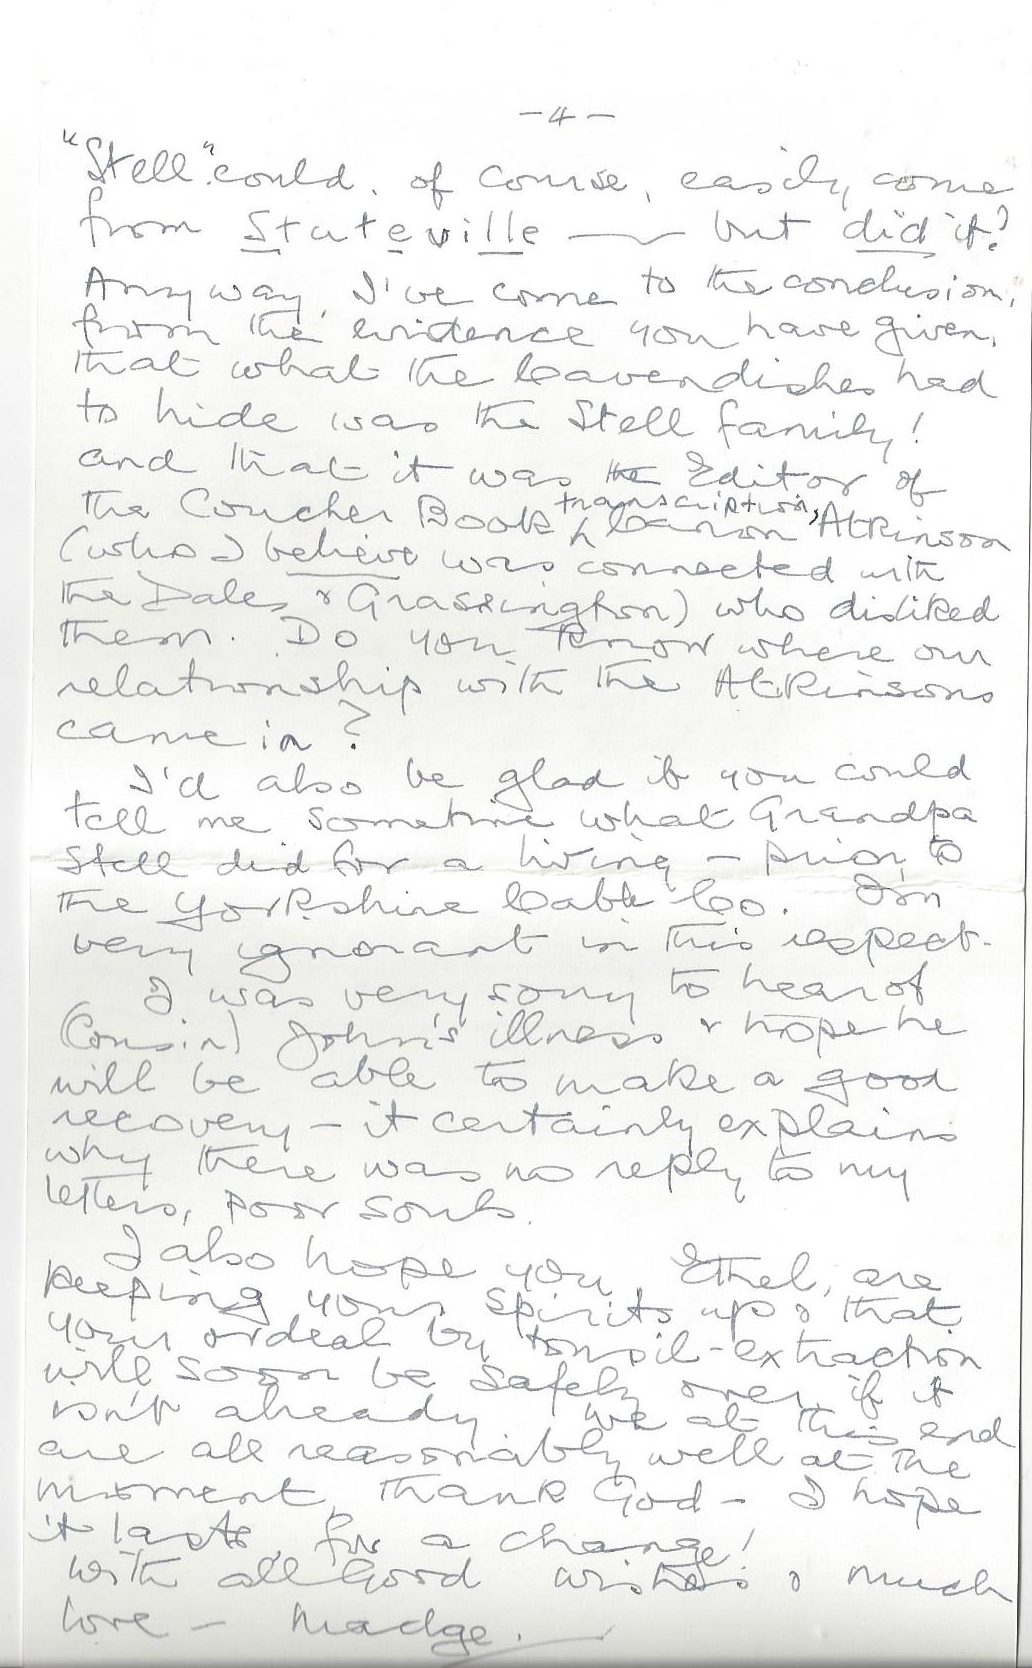 -4-
"Stell" could, of course, easily come
from Stuteville — but did it?
Anyway, I've come to the conclusion,
from the evidence you have given,
that what the Cavendishes had
to hide was the Stell family!
and that it was the Editor of
the Coucher Book transcription, Canon Atkinson
(who I believe was connected with
the Dales & Grassington) who disliked
them. Do you know where our
relationship with the Atkinsons
came in?
I'd also be glad if you could
tell me sometime what Grandpa
Stell did for a living - prior to
the Yorkshire Cable Co. I'm
very ignorant in this respect.
I was very sorry to hear of
(Cousin) John's illness & hope he
will be able to make a good
recovery - it certainly explains
why there was no reply to my
letters, poor souls.
I also hope you, Ethel, are
keeping your spirits up & that
your ordeal by tonsil-extraction
will soon be safely over, if it
isn't already. We at this end
are all reasonably well at the
moment, thank God - I hope
it lasts, for a change!
With all Good wishes & much
love - Madge.